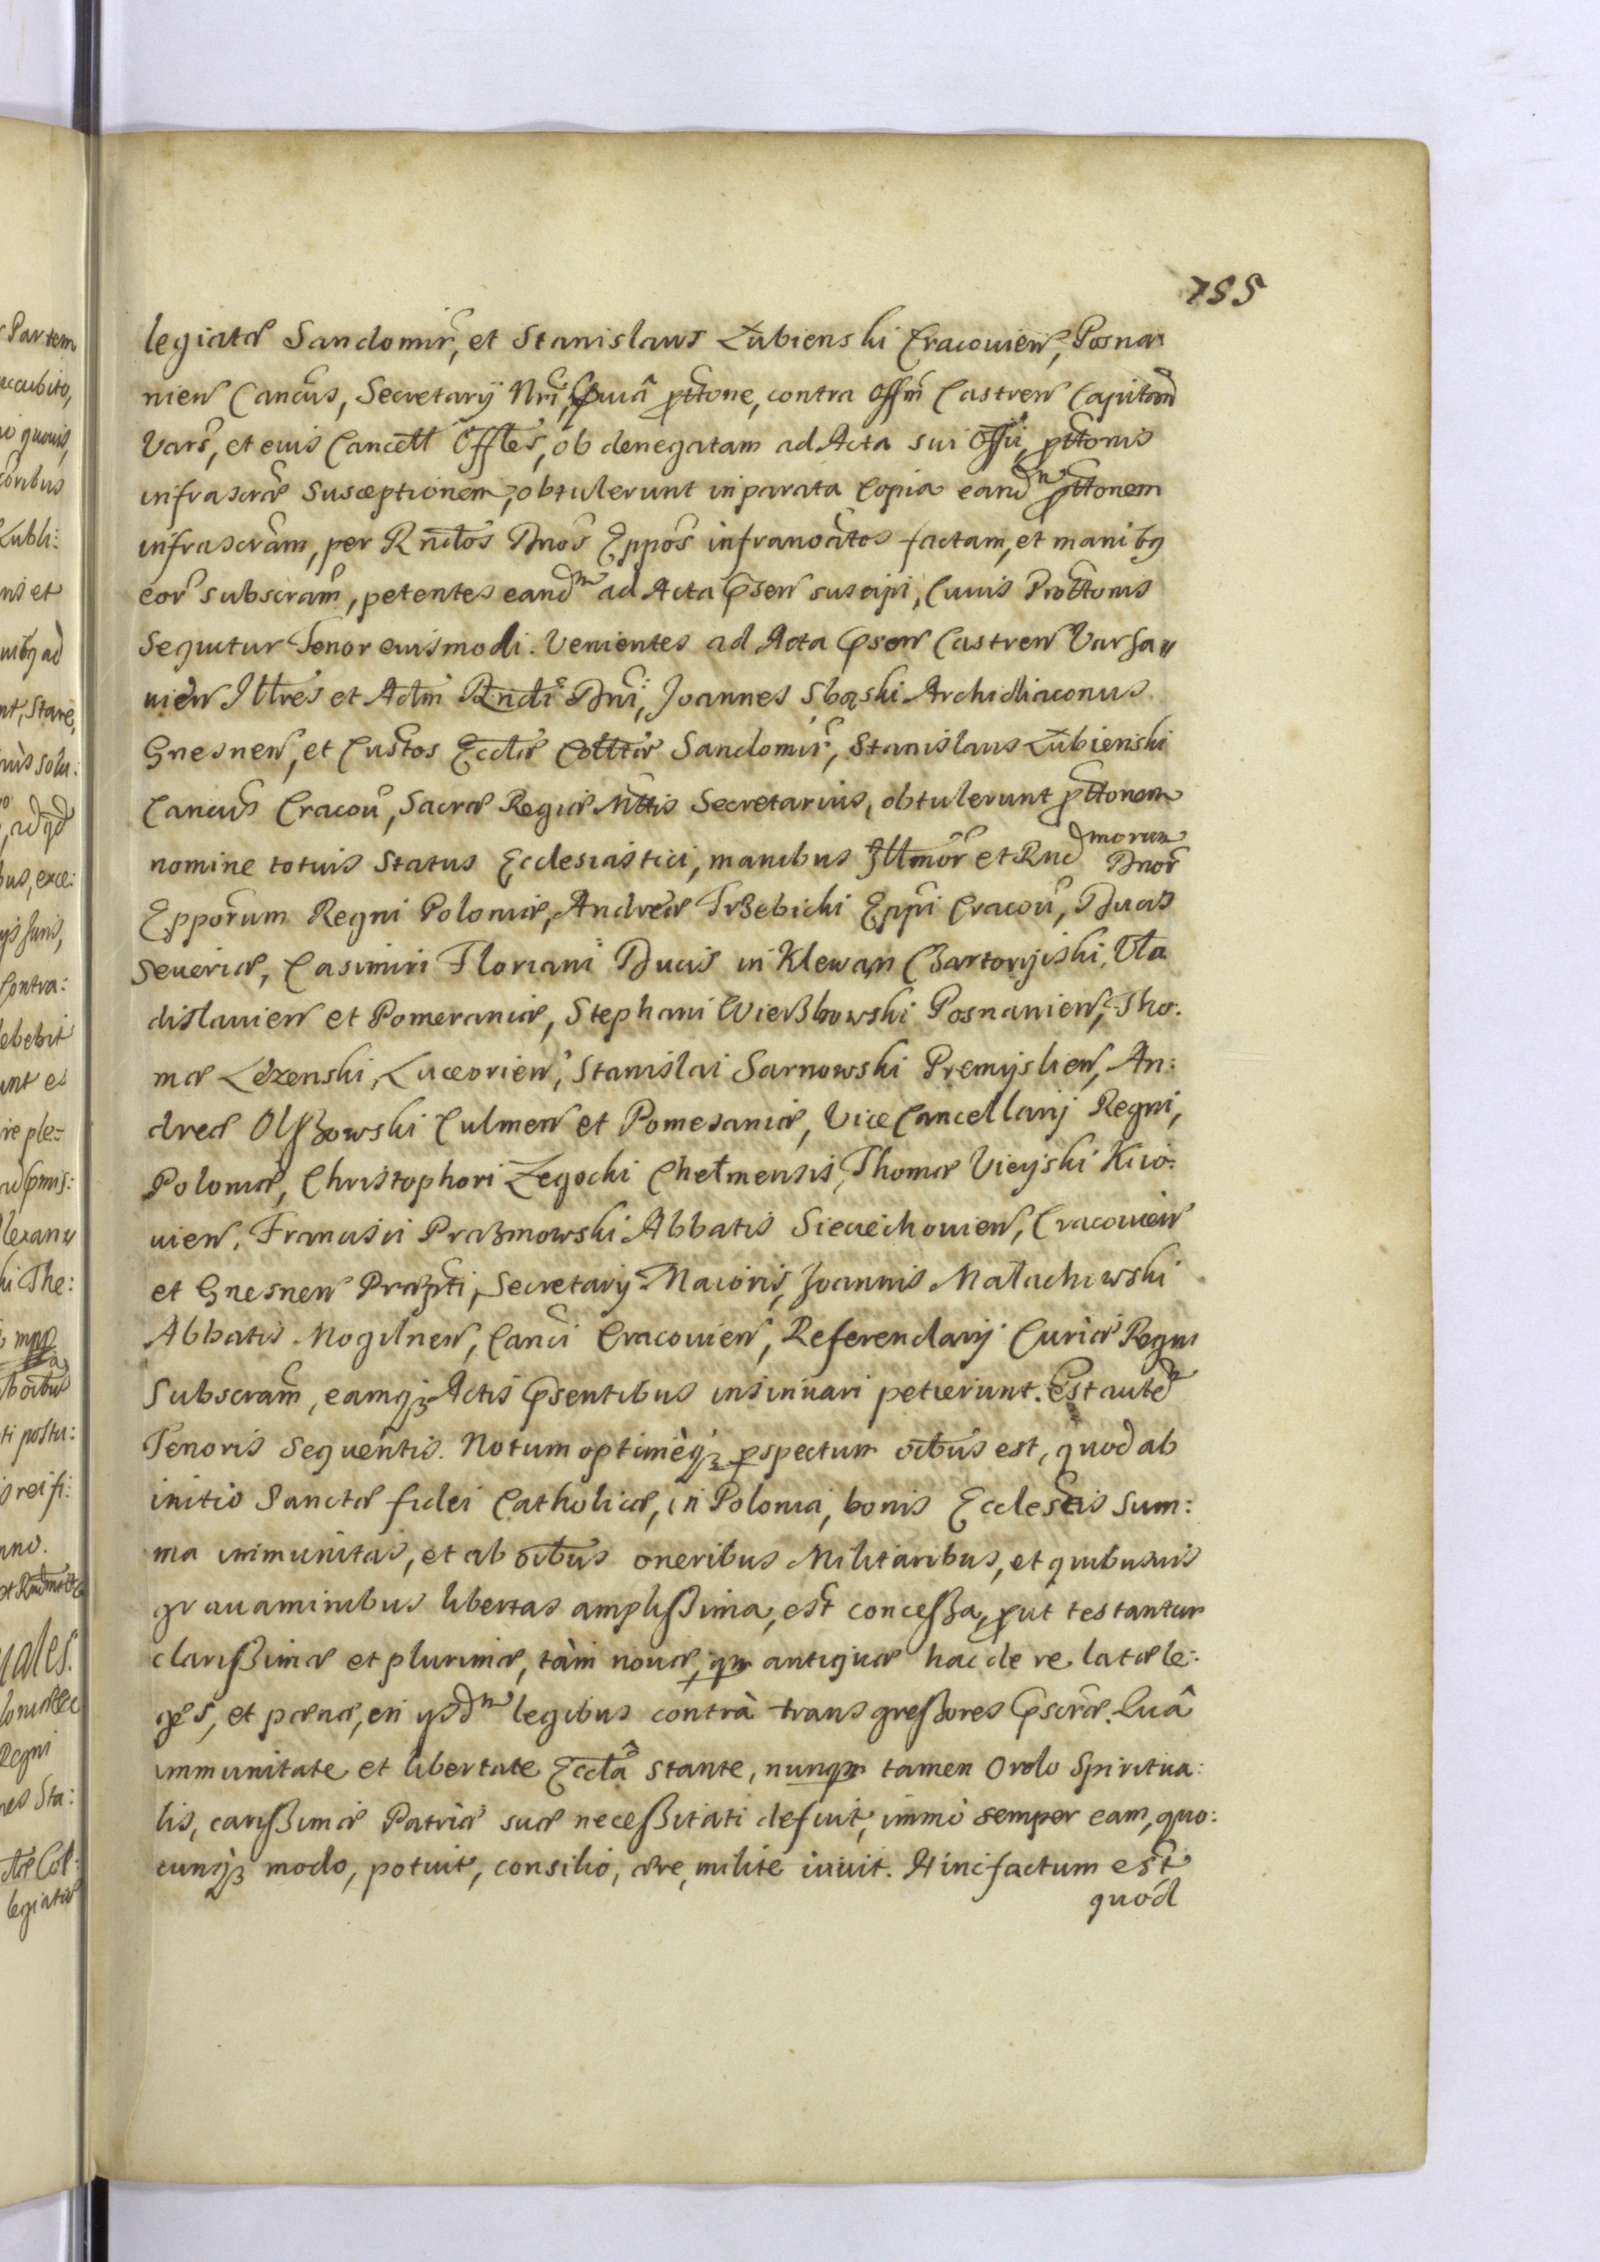 155
legiatæ Sandomir, et Stanislaus Łubienski Cracouien, Posna
nien Cancus, Secretarij Nri, suâ prttone, contra Offm Castren Capitan
Vars, et eius Cancell Offles, ob denegatam ad Acta sui Offii, prttonis
infrascræ susceptionem, obtulerunt in parata Copia eandm prttonem
infrascram, per Rndos Dnos Eppos infranoatos factam, et manibq
eor subscram, petentes eandm ad Acta Psen suscipi, Cuius Prottonis
Sequitur Tenor euismodi. Venientes ad Acta Psen Castren Varsa〃
uien Illres et Adm Rndi Dni, Joannes Sbąski Archidiaconus
Gnesnen, et Custos Ecclæ Colltæ Sandomir, Stanislaus Łubienski
Cancus Cracou, Sacræ Regiæ Mttis Secretarius, obtulerunt prttonem
nomine totius Status Ecclesiastici, manibus Illmor et Rnd morum Dnor
Epporum Regni Poloniæ, Andreæ Trzebicki Eppi Cracou, Ducis
Seueriæ, Casimiri Floriani Ducis in Klewan Czartoryiski, Vla
dislauien et Pomeraniæ, Stephani Wierzbowski Posnanien, Tho.
mæ Leżenski, Luceorien, Stanislai Sarnowski Premyslien, An:
dreæ Olszowski Culmen et Pomesaniæ, Vice Cancellarij Regni,
Poloniæ, Christophori Żegocki Chełmensis, Thomæ Vieyski Kiio:
uien, Francisci Prazmowski Abbatis Sieciechouien, Cracouien
et Gnesnen Præpti, Secretarij Maioris, Joannis Małachowski
Abbatis Mogilnen, Canci Cracouien, Referendarij Curiæ Regni
Subscram, eamqз Actis Psentibus insinuari petierunt. Est autem
Tenoris Sequentis. Notum optimèqз pspectum oibus est, quod ab
initio Sanctæ fidei Catholicæ, in Polonia, bonis Ecclesticis sum:
ma immunitas, et ab oibus oneribus Militaribus, et quibusuis
grauaminibus libertas amplissima, est concessa, put testantur
clarissimæ et plurimæ, tàm nouæ, qm antiquæ hac de re latæ le:
ges, et pænæ, in ysdm legibus contrà transgressores Pscræ. Quâ
immunitate et libertate Ecclâ stante, nunqm tamen Ordo Spiritua:
lis, carissimæ Patriæ suæ necessitati defuit, immò semper eam, quo:
cunqз modo, potuit, consilio, ære, milite iuuit. Hinc factum est
quód